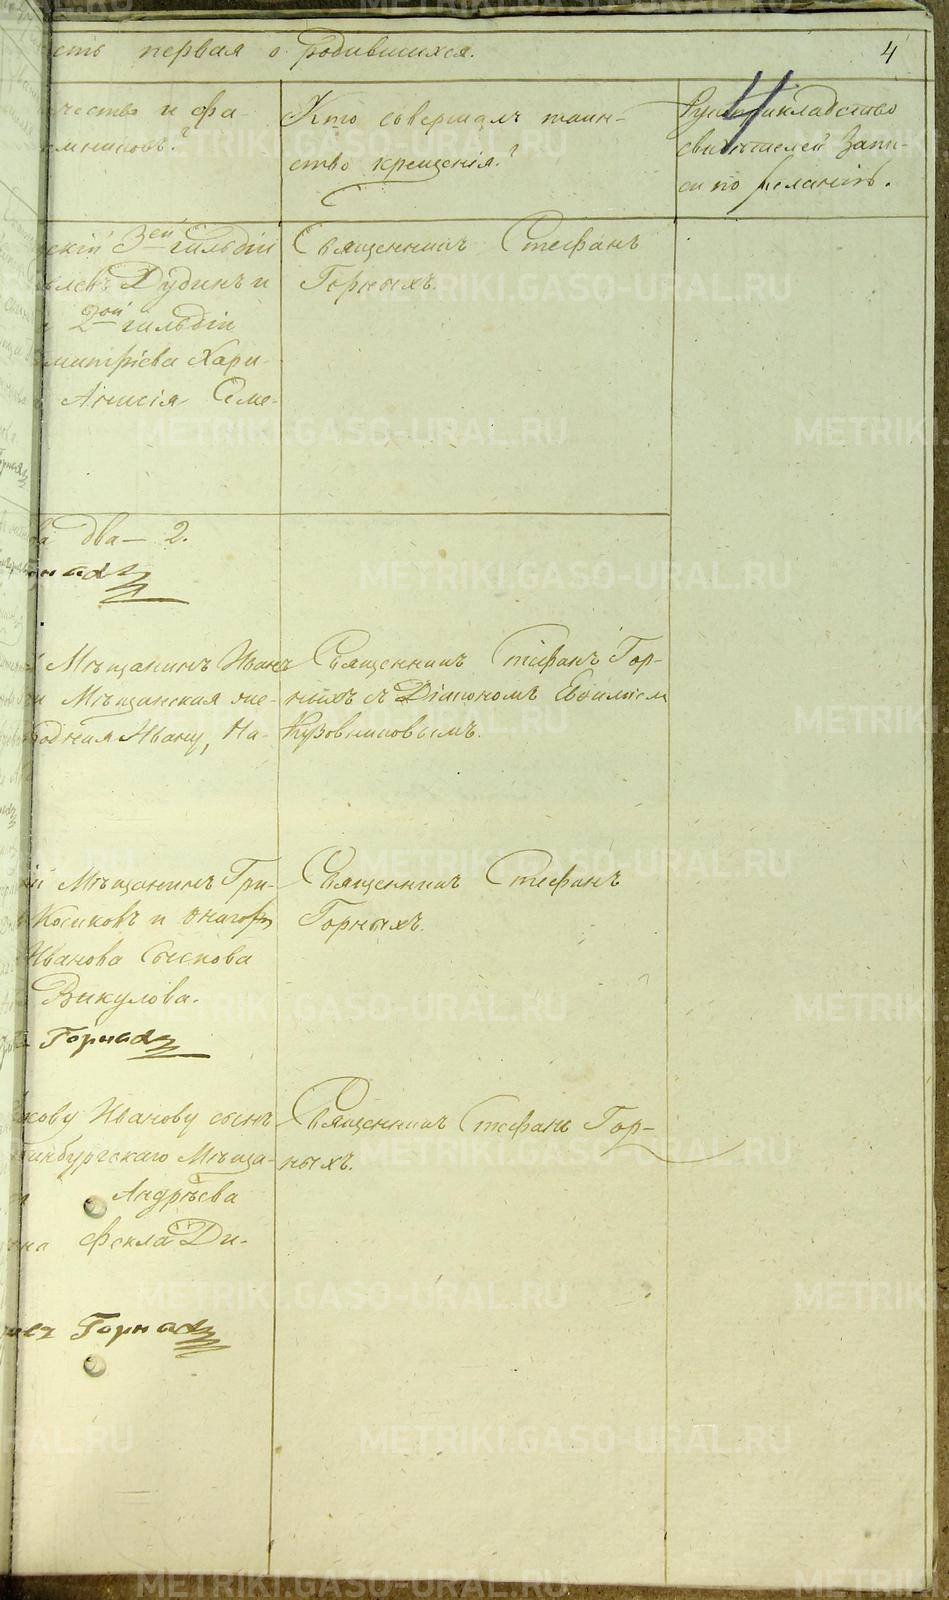 сть первая о родившихся. 4
4
чество и фа-
емниковъ?
Кто совершалъ таин-
ство крещенія?
Рукоприкладство
свидѣтелей запи-
си по желанію.
скій 3ей гильдіи
влевъ Дудинъ и
2ой гильдіи
митріева Хари-
Анисія Семе-
Священникъ Стефанъ
Горныхъ.
ва два — 2.
Горныхъ
Мѣщанинъ Иванъ
и Мѣщанская же-
родная Ивану, На-
Священникъ Стефанъ Гор-
ныхъ съ Діакономъ Евфиміем
Кузовниковымъ.
ій Мѣщанинъ Гри-
Косиковъ и онаго
Иванова Сыскова
Викулова.
Горныхъ
Священникъ Стефанъ
Горныхъ.
кову Иванову сынъ
инбургскаго Мѣща-
Андрѣева
на Фекла Ди-
Горныхъ
Священникъ Стефанъ Гор-
ныхъ.
METRIKI.GASO-URAL.RU